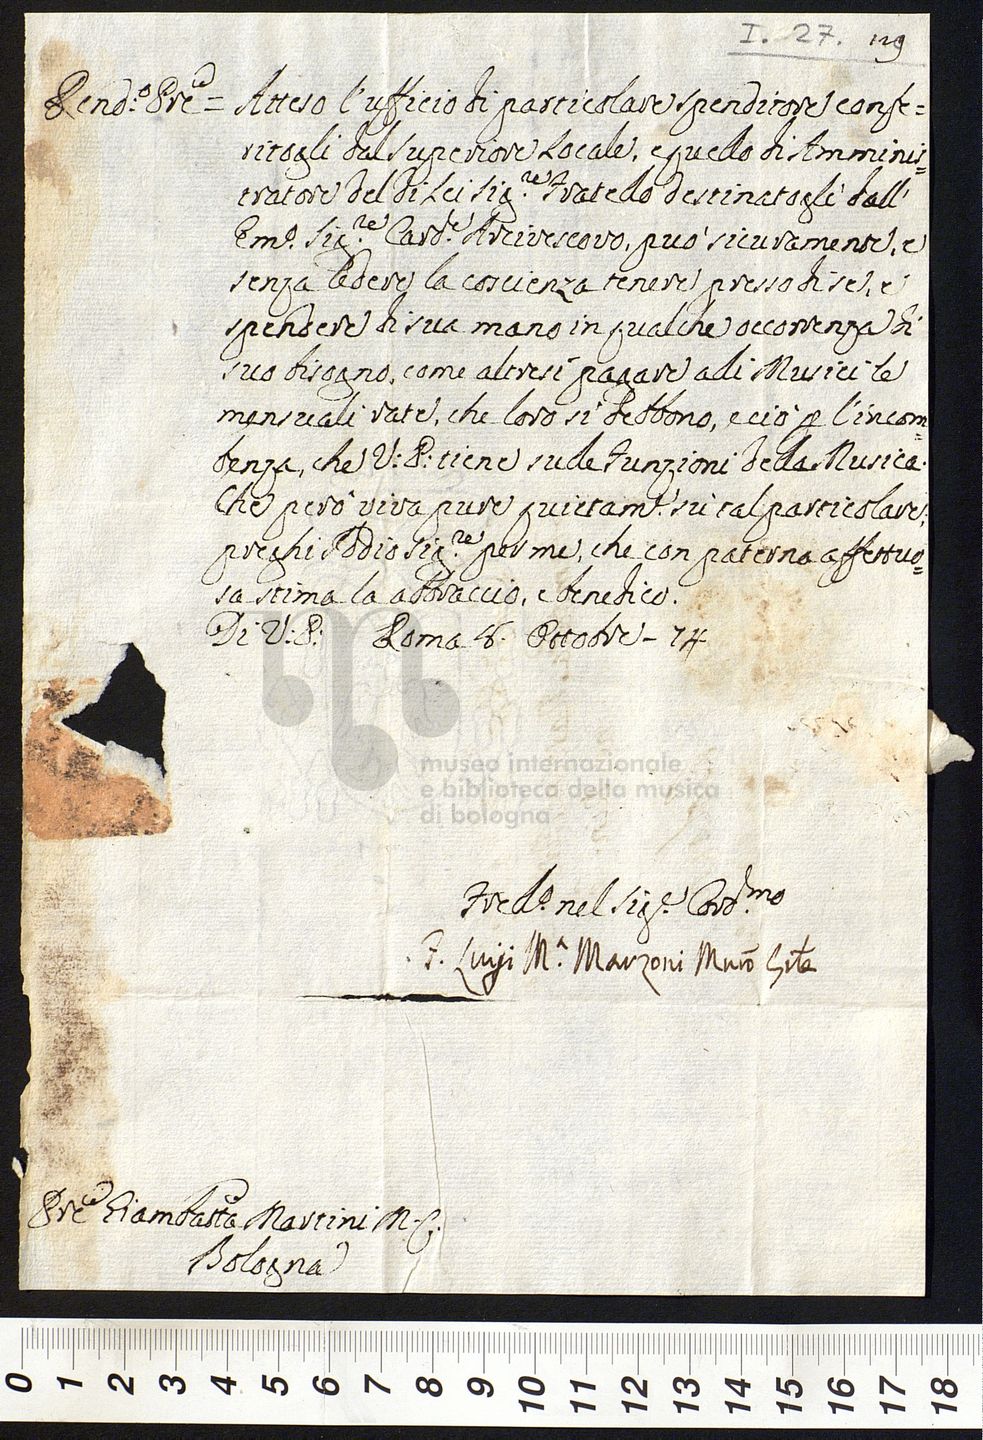 I. 27. 129
Rend.o Pre = Atteso l'ufficio di particolare spenditore confe=
ritogli dal Superiore Locale, e quello di Amminis=
tratore del di Lei Sig.re Fratello destinatogli dall'
Emo. Sig.re Card.e Arcivescovo, può sicuramente, e
senza ledere la coscienza tenere presso di se, e
spendere di sua mano in qualche occorrenza di
suo bisogno, come altresì pagare alli Musici le
mensuali rate, che loro si debbono, e ciò p l'incom=
benza, che V: P: tiene sulle Funzioni della Musica.
Che però viva pure quietam.e sù tal particolare;
preghi Iddio Sig.re per me, che con paterna affettuo=
sa stima la abbraccio, e benedico.
Di V: P: Roma 8. Ottobre - 74
museo internazionale
e biblioteca della musica
di bologna
nel Sig.e
F. Luigi M.a Marzoni
Pre Giambatta Martini M. C.
Bologna
0 1 2 3 4 5 6 7 8 9 10 11 12 13 14 15 16 17 18